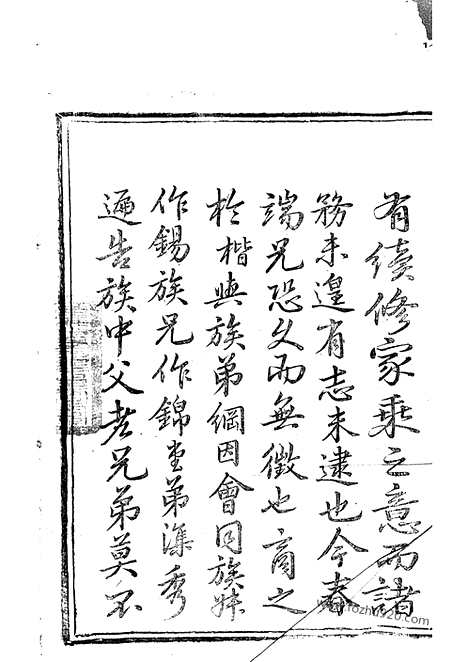 有續修家乘之意而諸
務未遑有志未逮也今春
端兄恐久而無徵也商之
於楷與族弟綱因會同族姊
作錫族兄作錦堂弟深秀
遍告族中父老兄弟莫不